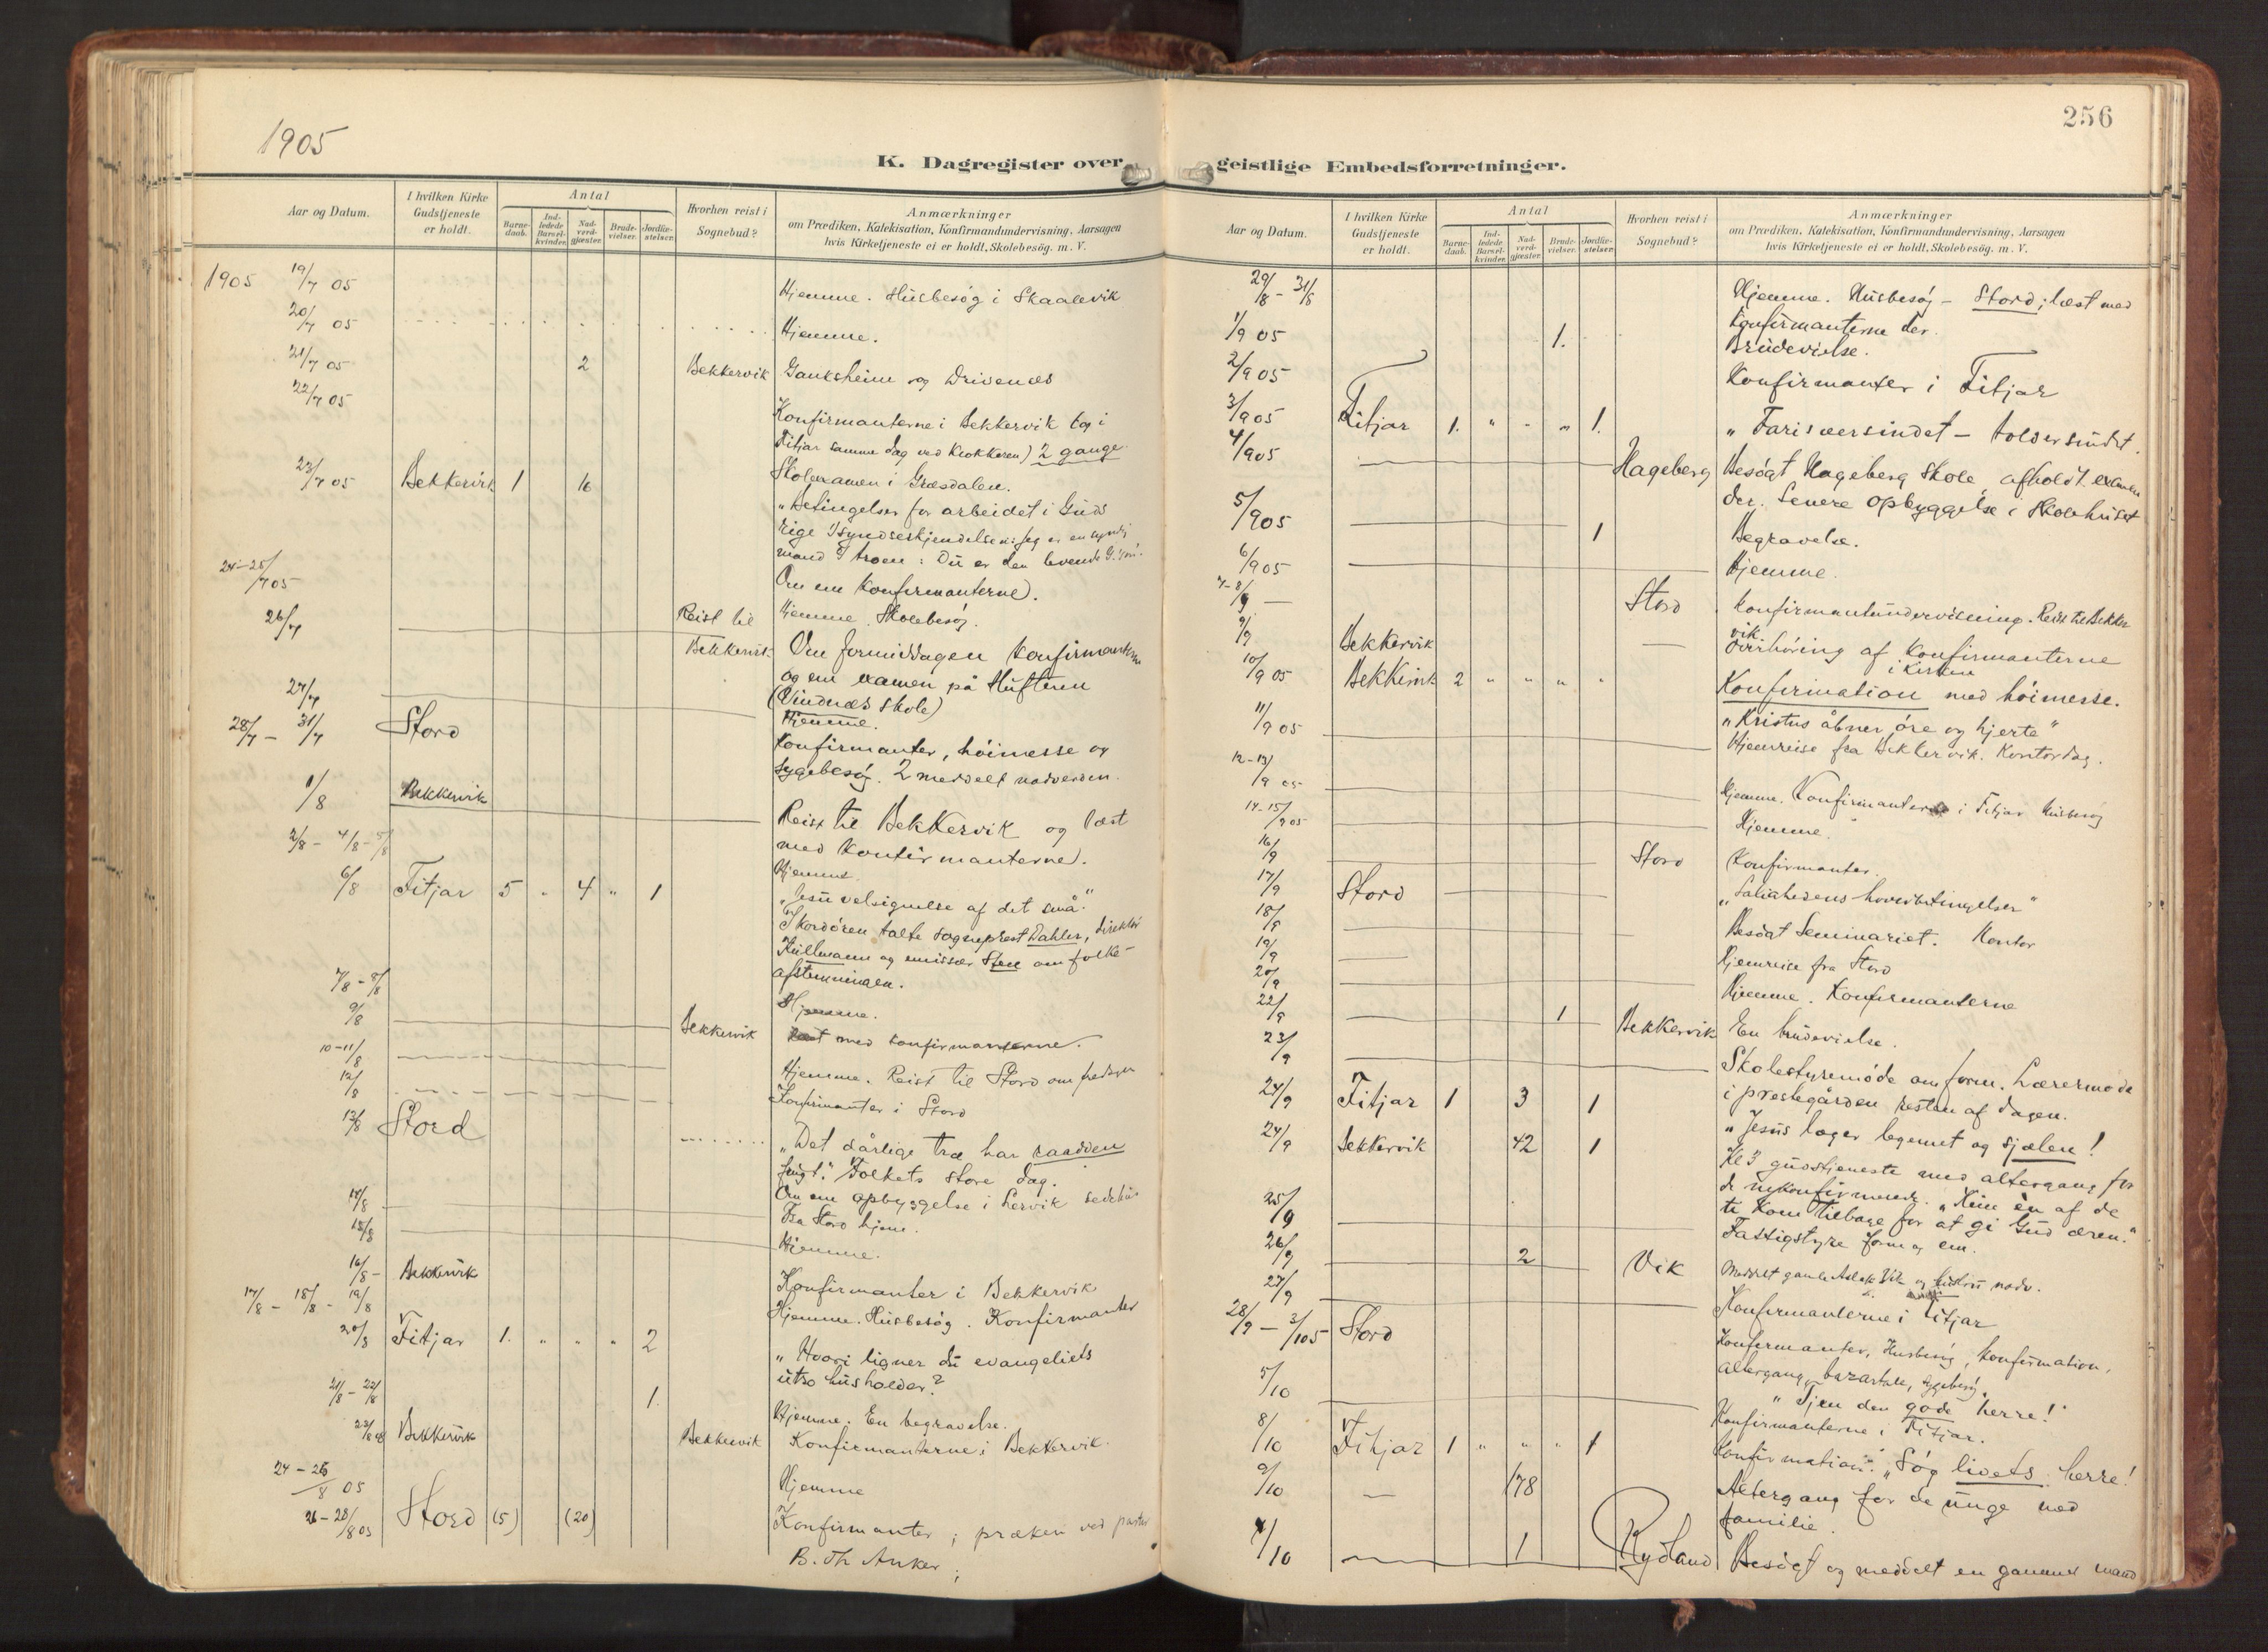 1905
K. Dagregister over
Aar og Datum.
I hvilken Kirke Gudstjeneste er holdt.
Antal
Barne-daab.
Ind-ledede Barsel-kvinder.
Nad-verd-gjæster.
Brude-vielser.
Jordfæ-stelser.
Hvorhen reist i Sognebud?
Anmærkninger
om Prædiken, Katekisation, Konfirmandundervisning, Aarsagen
hvis Kirketjeneste ei er holdt, Skolebesög. m. V.
1905 19/7 05 Hjemme. Husbesøg i Skaalevik
20/7 05 Hjemme.
21/7 05 2 Bekkervik Gauksheim og Drivenes
22/7 05 Konfirmanterne i Bekkervik (og i
Fitjar samme dag ved klokkeren) 2 gange.
Skoleexamen i Græsdalen.
23/7 05 Bekkervik 1 16
"Betingelser for arbeidet i Guds
rige
mand Troen: Du er den levende G. søn".
Om em konfirmanterne.
24-25/7 05 Hjemme. Skolebesøg.
26/7 Reist til Bekkervik Om formiddagen konfirmanterne
og em examen på Hufteren
(Vindnæs skole)
27/7 Hjemme.
28/7 - 31/7 Stord Konfirmanter, höimesse og
sygebesøg. 2 meddelt nadverden.
1/8 Bekkervik Reist til Bekkervik og læst
med konfirmanterne.
2/8 - 4/8 - 5/8 Hjemme.
6/8 Fitjar 5 " 4 " 1 "Jesu velsignelse af det små."
talte sogneprest Dahler, direktør
Kullmann og emissær Sten om folke-
afstemningen.
7/8 - 8/8 Hjemme.
9/8 Bekkervik Læst med konfirmanterne.
10-11/8 Hjemme. Reist til Stord om fredagen
12/8 Konfirmanter i Stord
13/8 Stord "Det dårlige træ har raadden
frugt." Folkets store dag.
Om em opbyggelse i Lervik bedehus
14/8 Fra Stord hjem.
15/8 Hjemme.
16/8 - Bekkervik Konfirmanter i Bekkervik
17/8 - 18/8 - 19/8 Hjemme. Husbesøg. Konfirmanter
20/8 Fitjar 1. " " " 2 "Hvori ligner du evangeliets
utro husholder?
21/8 - 22/8 1. Hjemme. En begravelse.
23/8 Bekkervik Bekkervik Konfirmanterne i Bekkervik.
24-26/8 05 Hjemme
26-28/8 05 Stord (5) (20) Konfirmanter; præken ved pastor
B. Th Anker;
256
geistlige Embedsforretninger.
Aar og Datum.
I hvilken Kirke Gudstjeneste er holdt.
Antal
Barne-daab.
Ind-ledede Barsel-kvinder.
Nad-verd-gjæster.
Brude-vielser.
Jordfæ-stelser.
Hvorhen reist i Sognebud?
Anmærkninger
om Prædiken, Katekisation, Konfirmandundervisning, Aarsagen
hvis Kirketjeneste ei er holdt, Skolebesög. m. V.
29/8 - 31/8 Hjemme. Husbesøg - Stord; læst med
konfirmanterne der.
1/9 05 1. Brudevielse.
2/9 05 Konfirmanter i Fitjar
3/9 05 Fitjar 1. " - " 1. "Farisæersindet - toldersindet.
4/9 05 Hageberg Besøgt Hageberg Skole afholdt examen
der. Senere opbyggelse i Skolehuset
5/9 05 1 Begravelse.
6/9 05 Hjemme.
7-8/9 - Stord Konfirmantundervisning. Reist til Bekker
vik.
9/9 Bekkervik Overhøring af konfirmanterne
i kirken
10/9 05 Bekkervik 2 " " " " Konfirmation med höimesse.
"Kristus åbner öre og hjerte"
11/9 05 Hjemreise fra Bekkervik. Kontordag.
12-13/9 05 Hjemme. Konfirmanter i Fitjar Husbesøg
14-15/9 05 Hjemme.
16/9 Stord Konfirmanter.
17/9 Stord "Salighedens hovedbetingelser"
18/9 Besøgt Seminariet. Kontor
19/9 Hjemreise fra Stord
20/9 Hjemme. Konfirmanterne
22/9 1 Bekkervik En brudevielse.
23/9 Skolestyremöde om form. Lærermöde
i prestegården resten af dagen.
24/9 Fitjar 1 3 1 "Jesus læger legemet og sjælen!
24/9 Bekkervik 42 1 Kl 3 gudstjeneste med altergang for
de nykonfirmerede. "Kun én af de
ti kom tilbage for at gi Gud æren."
25/9 Fattigstyre form og em.
26/9 2 Vik Meddelt gamle Aslak Vik og hustru nadv.
27/9 Konfirmanterne i Fitjar
28/9 - 3/10 5 Stord Konfirmanter, Husbesøg, konfirmation,
altergang, sygebesøg.
"Tjen den gode herre!"
5/10 Konfirmanterne i Fitjar.
8/10 Fitjar 1 " " " 1 Konfirmation: "Søg livets herre!
9/10 — 178 Altergang for de unge med
familie.
/10 1 Rydland Besøgt og meddelt en gammel mand